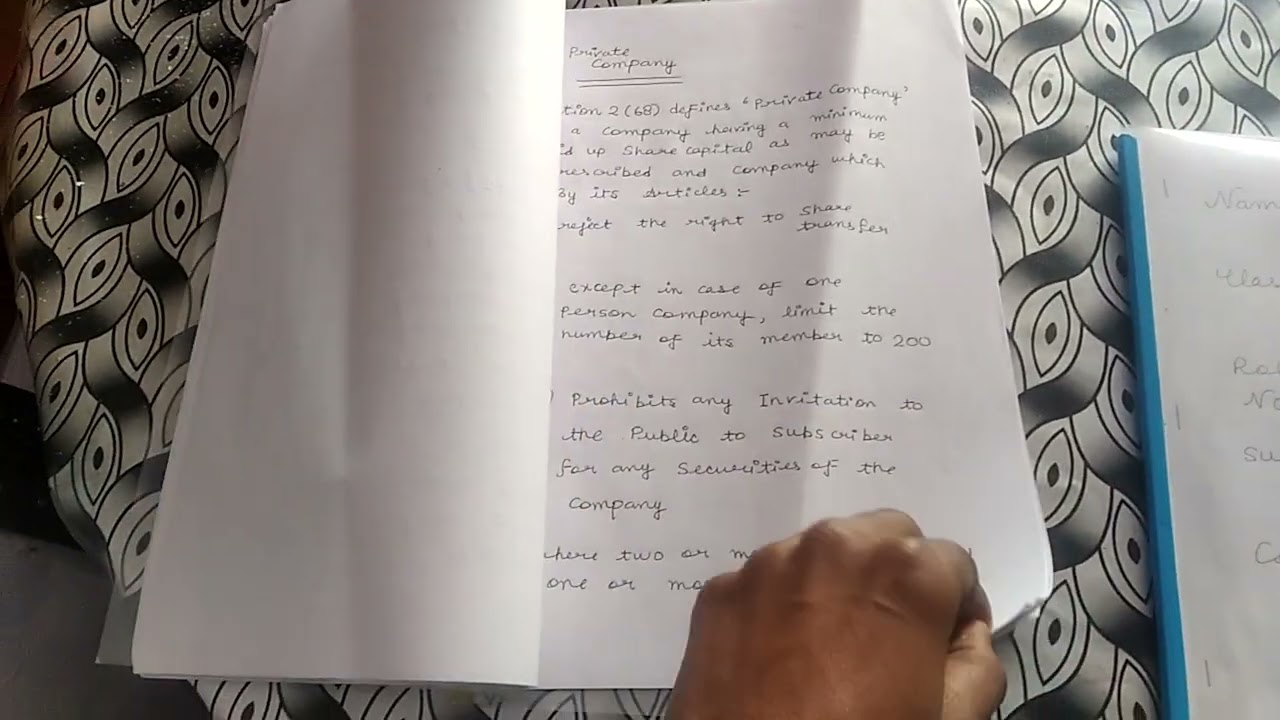 Private
Company
tion 2 (68) defines "Private Company"
a company having a minimum
id up share capital as may be
rescribed and company which
By its Articles :-
reject the right to share
transfer
except in case of one
Person Company, limit the
number of its member to 200
) Prohibits any Invitation to
the Public to subscriber
for any securities of the
Company
here two or m
one or mo
Nam
Clas
Rol
No
Su
Co